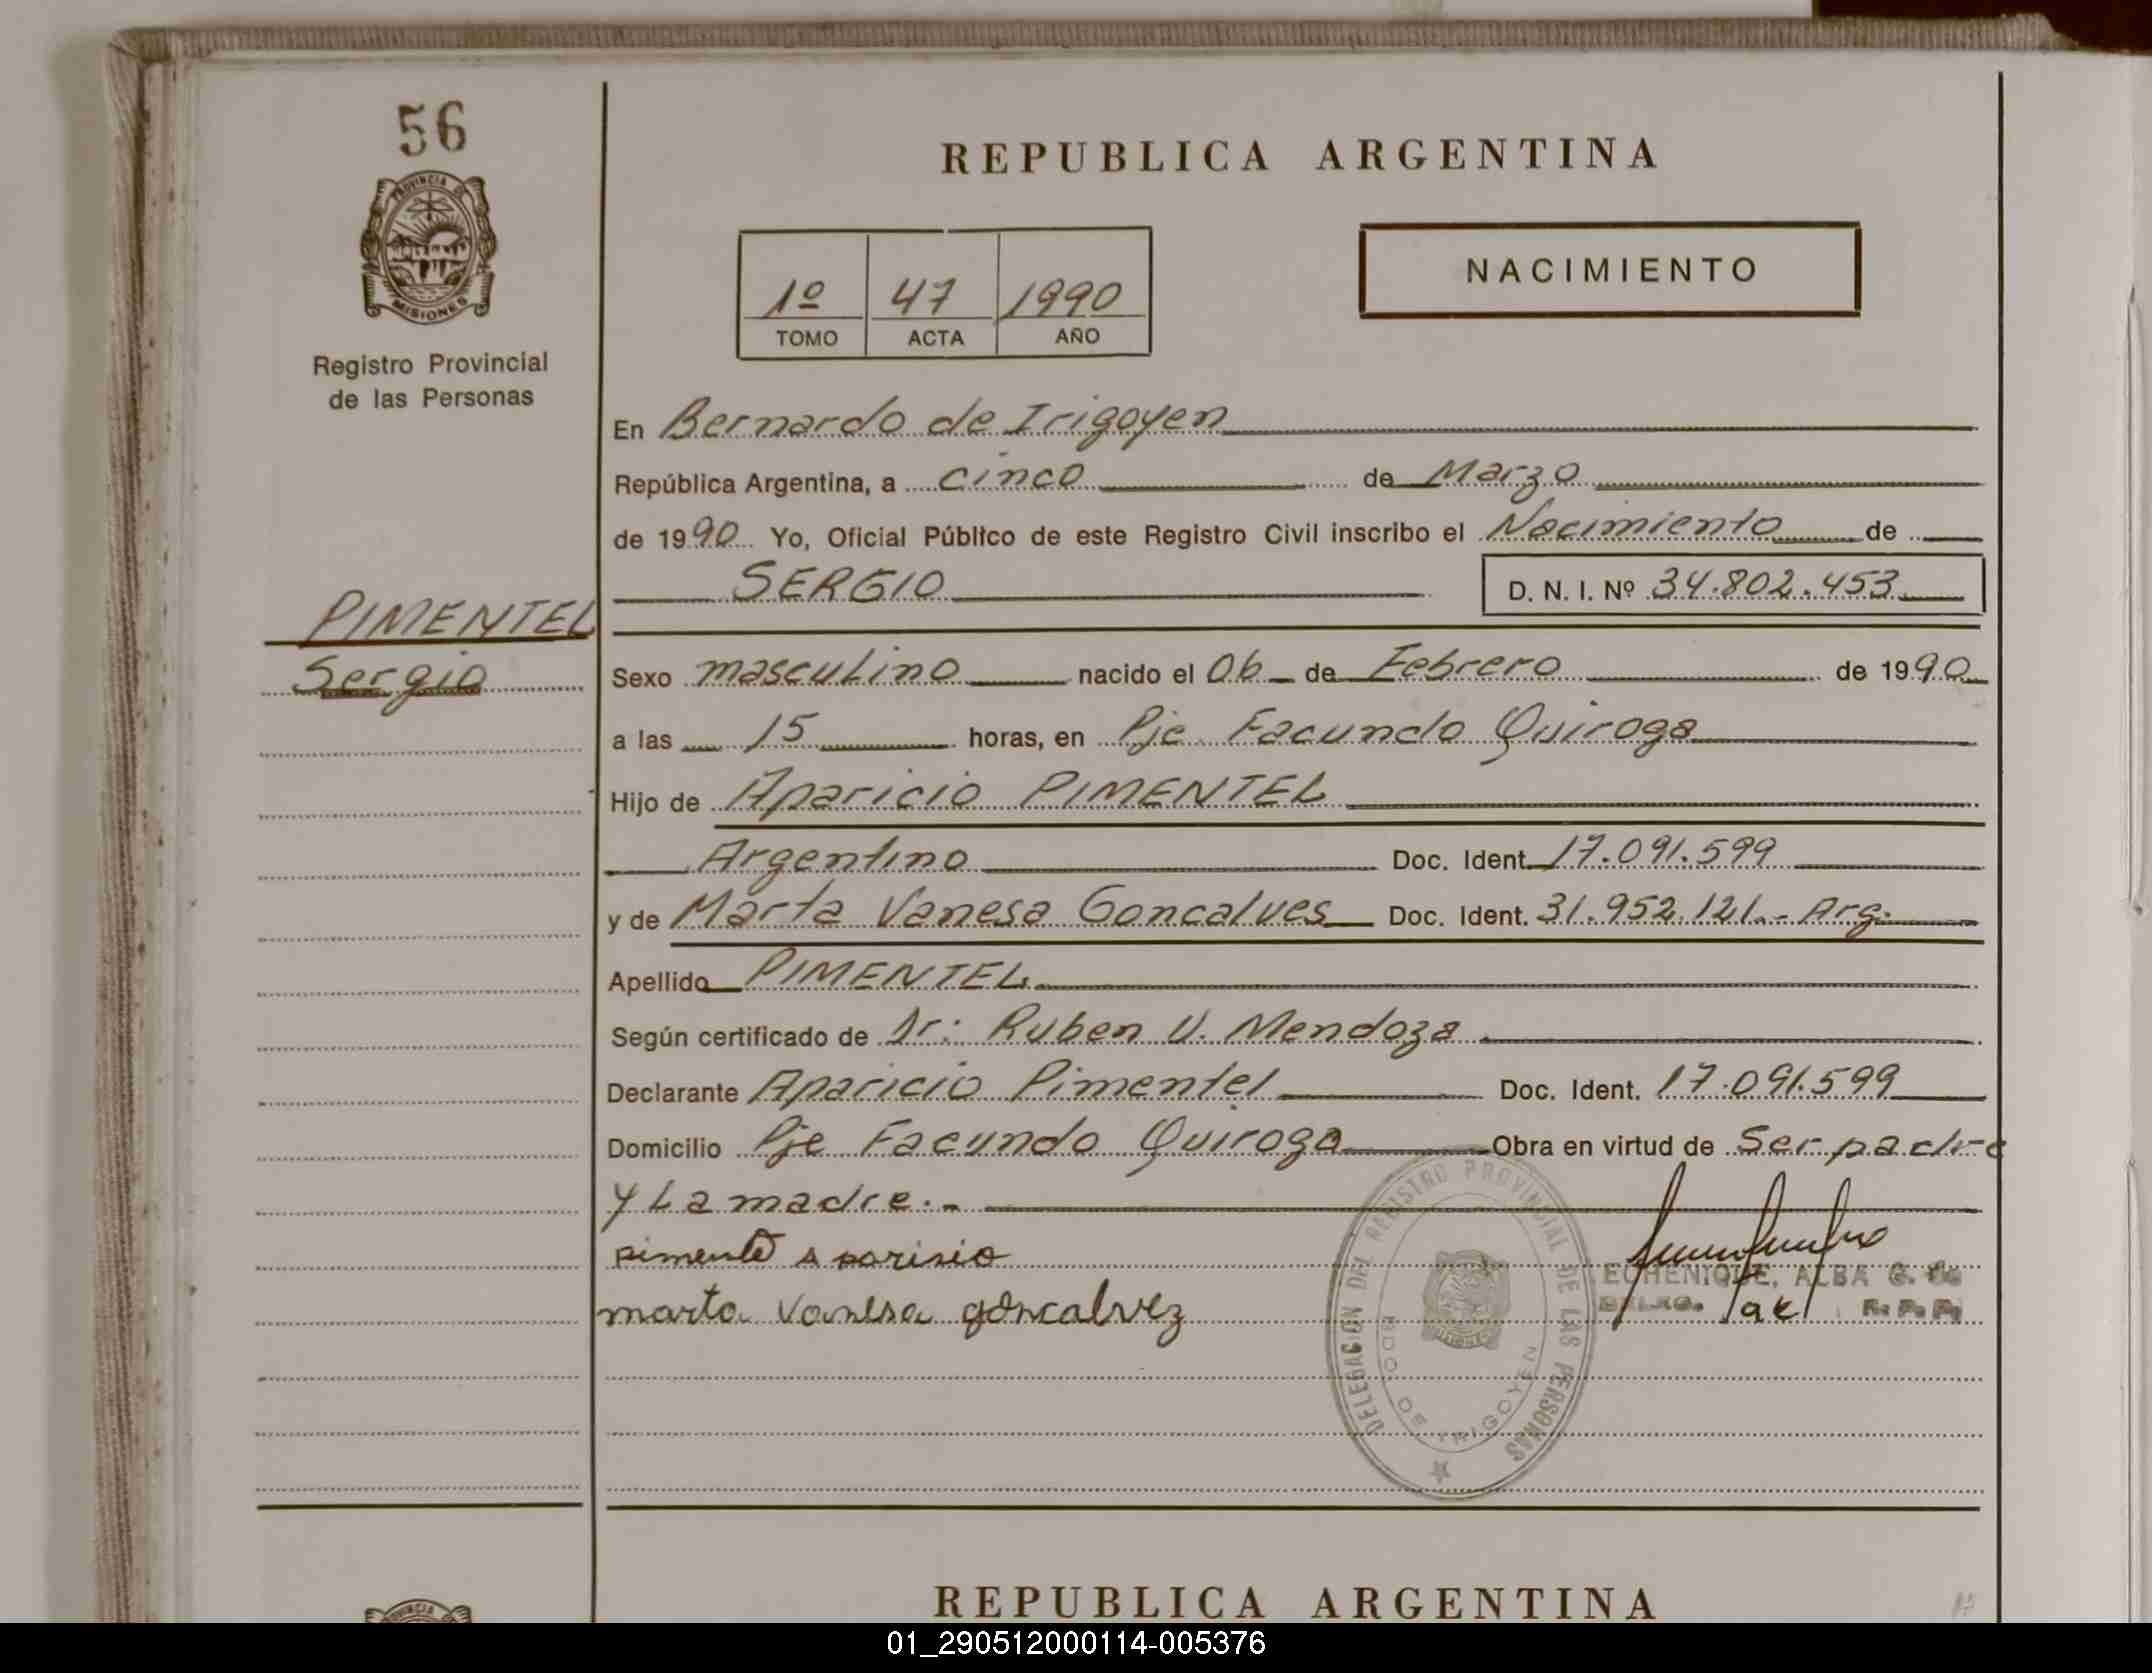 56
PROVINCIA DE
MISIONES
Registro Provincial
de las Personas
REPUBLICA ARGENTINA
1º 47 1990
TOMO ACTA AÑO
NACIMIENTO
En Bernardo de Irigoyen
República Argentina, a cinco de Marzo
de 1990 Yo, Oficial Público de este Registro Civil inscribo el Nacimiento de
SERGIO D. N. I. Nº 34.802.453
PIMENTEL
Sergio
Sexo masculino nacido el 06 de Febrero de 1990
a las 15 horas, en Pje Facundo Quiroga
Hijo de Aparicio PIMENTEL
Argentino Doc. Ident. 17.091.599
y de Marta Vanesa Goncalves Doc. Ident. 31.952.121.- Arg.
Apellido PIMENTEL
Según certificado de Dr: Ruben U. Mendoza
Declarante Aparicio Pimentel Doc. Ident. 17.091.599
Domicilio Pje Facundo Quiroga Obra en virtud de Ser padre
y La madre.-
pimentel aparisio
marta vanesa goncalvez
DELEGACION DEL REGISTRO PROVINCIAL DE LAS PERSONAS
BDO. DE IRIGOYEN
ECHENIQUE, ALBA G. de
R. P. P.
REPUBLICA ARGENTINA
PROVINCIA
17
01_290512000114-005376